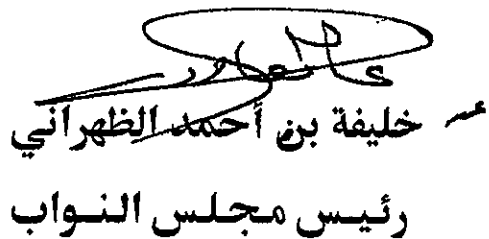 خليفة بن أحمد الظهراني
رئيس مجلس النواب